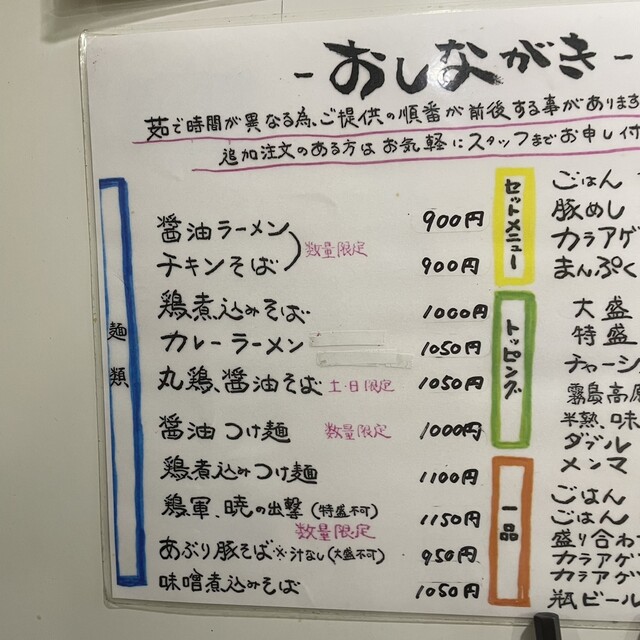 -おしながき-
茹で時間が異なる為、ご提供の順番が前後する事があります
追加注文のある方はお気軽にスタッフまでお申し付
麺類
醤油ラーメン 900円
数量限定
チキンそば 900円
鶏煮込みそば 1000円
カレーラーメン 1050円
丸鶏、醤油そば 土・日限定 1050円
醤油つけ麺 数量限定 1000円
鶏煮込みつけ麺 1100円
鶏軍、暁の出撃(特盛不可) 1150円
数量限定
あぶり豚そば※汁なし(大盛不可) 950円
味噌煮込みそば 1050円
セットメニュー
ごはん
豚めし
カラアゲ
まんぷく
トッピング
大盛
特盛
チャーシュ
霧島高原
半熟、味
ダブル
メンマ
一品
ごはん
ごはん
盛り合わ
カラアゲ
カラアゲ
瓶ビール